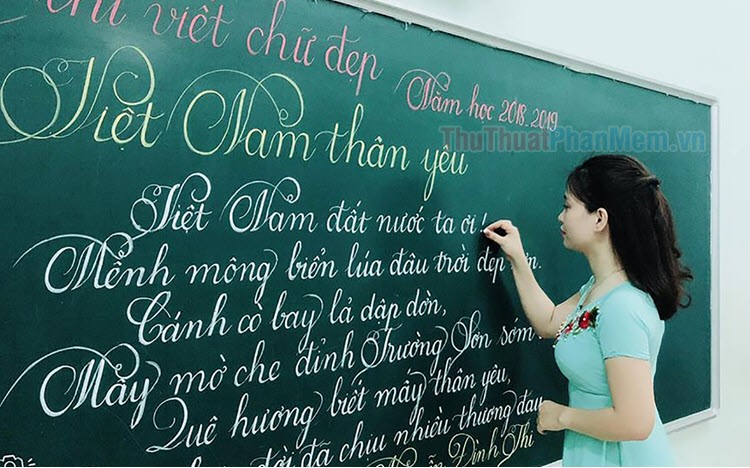 viết chữ đẹp
Năm học 2018-2019
ThuThuatPhanMem.vn
Việt Nam thân yêu
Việt Nam đất nước ta ơi!
Mênh mông biển lúa đâu trời đẹp
Cánh cò bay lả dập dờn,
Mây mờ che đỉnh Trường Sơn sớm
Quê hương biết mấy thân yêu,
đời đã chịu nhiều thương đau
Đình Thi